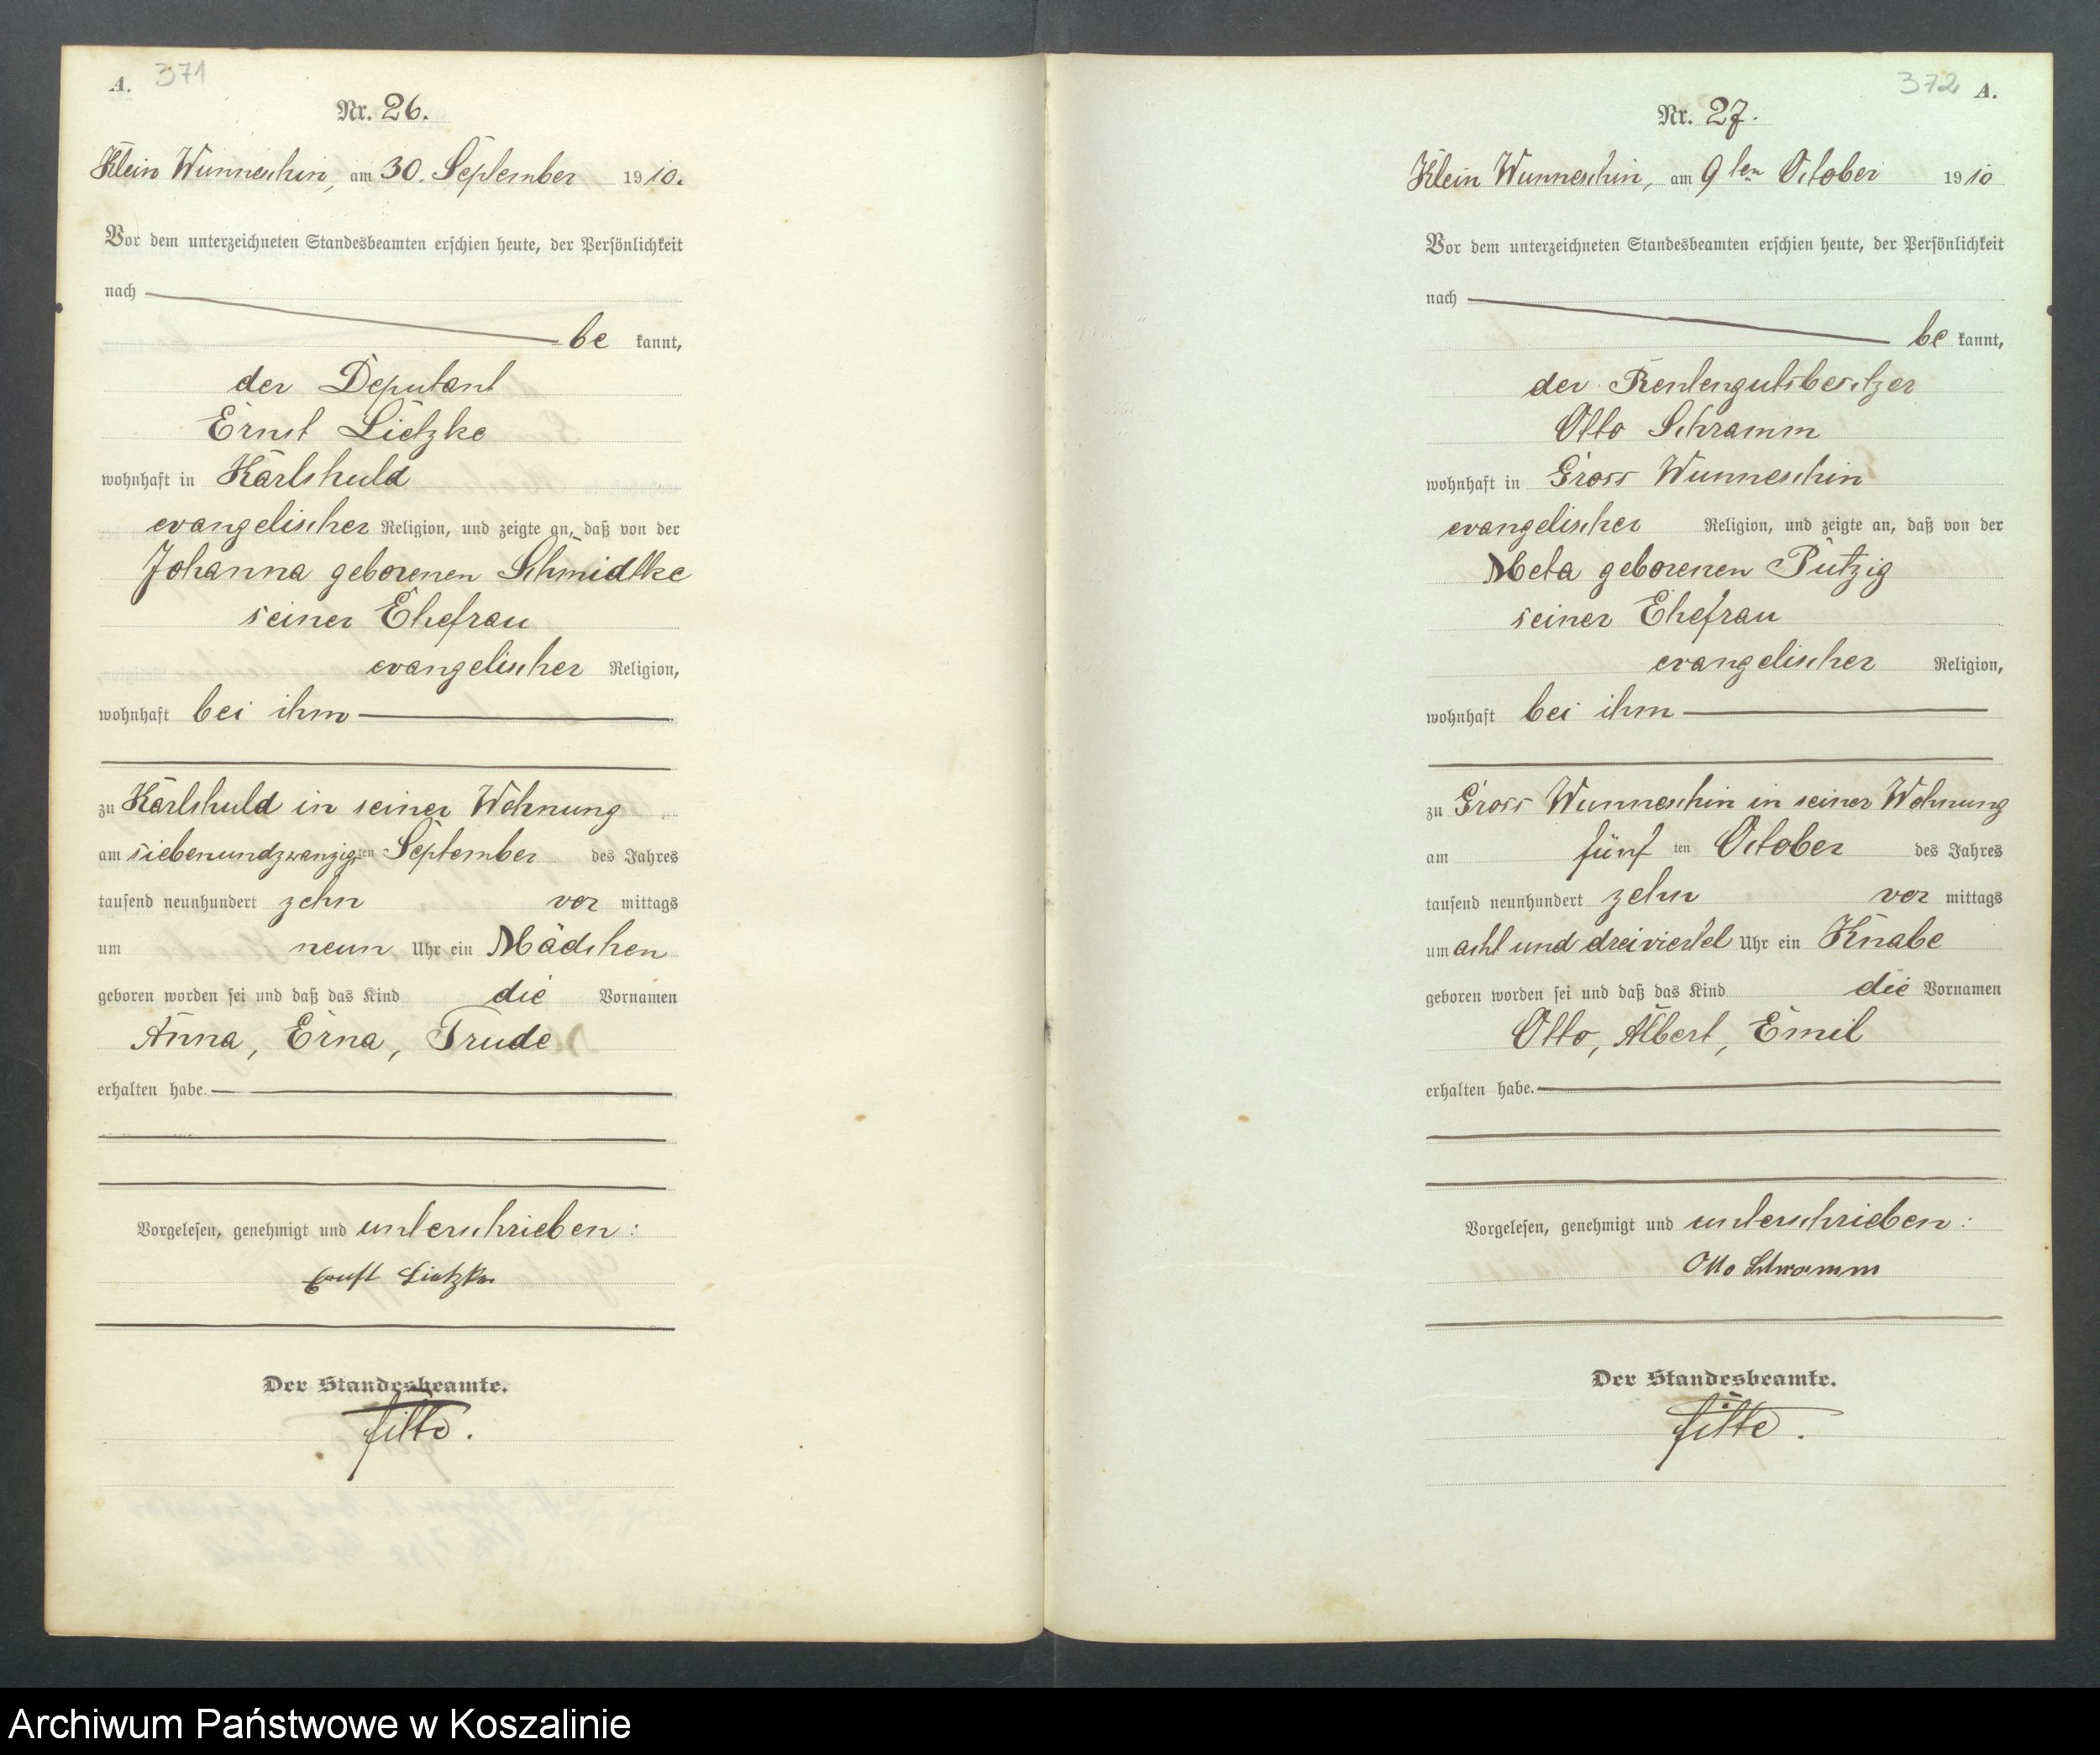 A. 371
Nr. 26.
Klein Wunneschin, am 30. September 1910.
Vor dem unterzeichneten Standesbeamten erschien heute, der Persönlichkeit
nach
be kannt,
der Deputant
Ernst Lietzke
wohnhaft in Karlshuld
evangelischer Religion, und zeigte an, daß von der
Johanna geborenen Schmidtke
seiner Ehefrau
evangelischer Religion,
wohnhaft bei ihm
zu Karlshuld in seiner Wohnung
am siebenundzwanzigsten September des Jahres
tausend neunhundert zehn vor mittags
um neun Uhr ein Mädchen
geboren worden sei und daß das Kind die Vornamen
Anna, Erna, Trude
erhalten habe.
Vorgelesen, genehmigt und unterschrieben:
Ernst Lietzke
Der Standesbeamte.
372 A.
Nr. 27.
Klein Wunneschin, am 9ten October 1910
Vor dem unterzeichneten Standesbeamten erschien heute, der Persönlichkeit
nach
be kannt,
der Rentengutsbesitzer
Otto Schramm
wohnhaft in Gross Wunneschin
evangelischer Religion, und zeigte an, daß von der
Meta geborenen Putzig
seiner Ehefrau
evangelischer Religion,
wohnhaft bei ihm
zu Gross Wunneschin in seiner Wohnung
am fünf ten October des Jahres
tausend neunhundert zehn vor mittags
um acht und dreiviertel Uhr ein Knabe
geboren worden sei und daß das Kind die Vornamen
Otto, Albert, Emil
erhalten habe.
Vorgelesen, genehmigt und unterschrieben:
Otto Schramm
Der Standesbeamte.
Archiwum Państwowe w Koszalinie